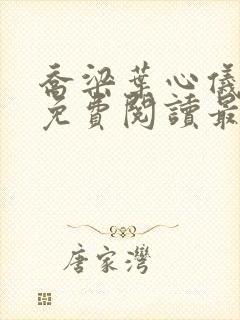 喬梁葉心儀
免費閱讀最
唐家灣